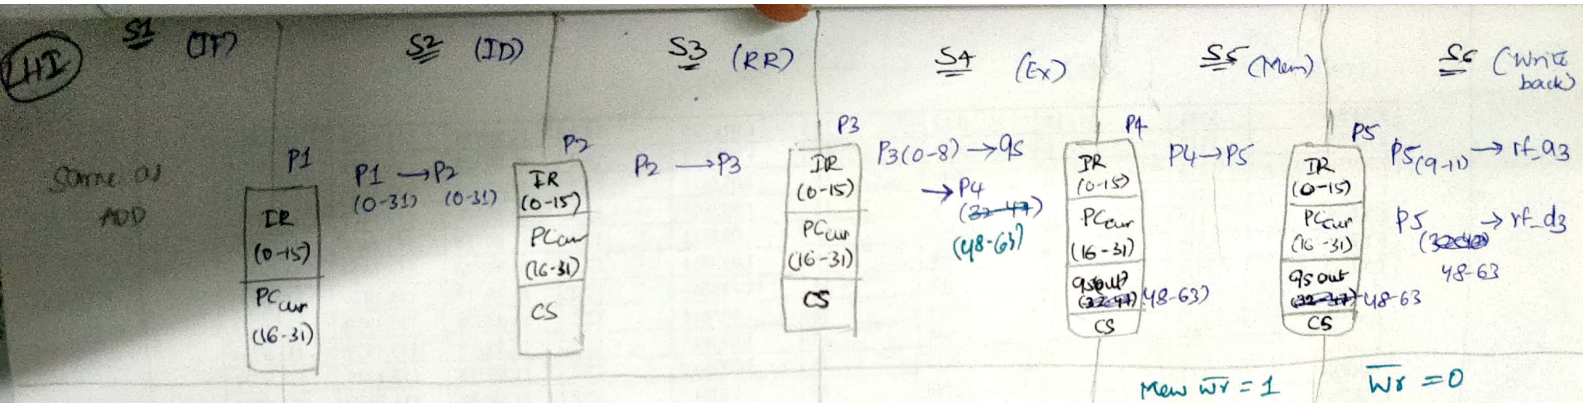 LHI
S1 (IF)
S2 (ID)
S3 (RR)
S4 (Ex)
S5 (Mem)
S6 (Write
back)
Same as
ADD
P1
IR
(0-15)
PCcur
(16-31)
P1 → P2
(0-31) (0-31)
P2
IR
(0-15)
PCcur
(16-31)
CS
P2 → P3
P3
IR
(0-15)
PCcur
(16-31)
CS
P3(0-8) → qs
→ P4
(32-47)
(48-63)
P4
IR
(0-15)
PCcur
(16-31)
qsout
(32-47) 48-63)
CS
P4 → P5
P5
IR
(0-15)
PCcur
(16-31)
qsout
(32-47) 48-63
CS
P5(9-11) → rf_a3
P5 → rf_d3
48-63
Mem W̅r̅ = 1
W̅r̅ = 0